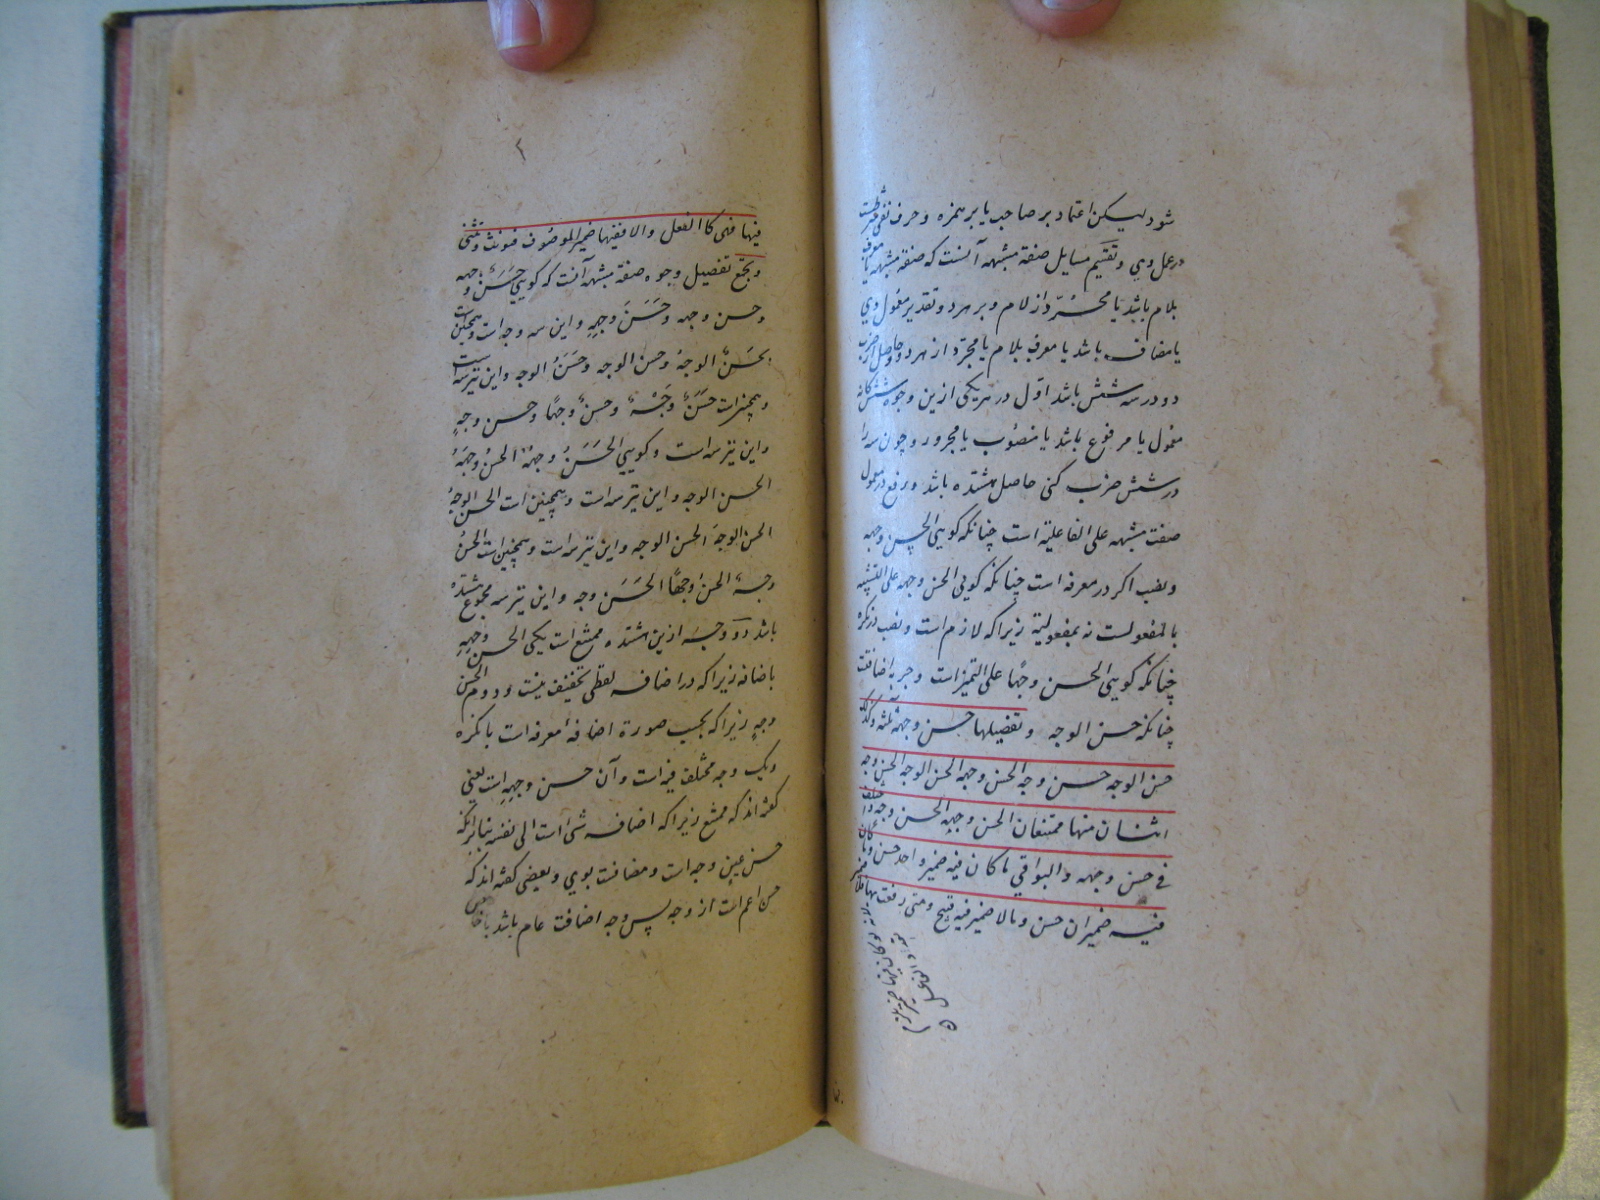 شود لیکن اعتماد بر صاحب یا بر همزه و حرف نفی شرطست
در عمل وی و تقسیم مسایل صفة مشبهه آنست که صفة مشبهه یا معرف
بلام باشد یا مجرّد از لام و بر هر دو تقدیر معمول وی
یا مضاف باشد یا معرف بلام یا مجرّد از هر دو و حاصل از ضرب
دو در سه شش باشد اوّل در هر یکی ازین وجوه ششکانه
معمول یا مرفوع باشد یا منصوب یا مجرور و چون سه را
در شش ضرب کنی حاصل هشتده باشد و رفع در معمول
صفت مشبهه علی الفاعلیة است چنانکه کویی الحسن وجهه
و نصب اکر در معرفه است چنانکه کویی الحسن وجهه علی التشبیه
بالمفعولست نه بمفعولیة زیرا که لازم است و نصب در نکره
چنانکه کویی الحسن وجهًا علی التمیز است و جر به اضافت
چنانکه حسن الوجه و تفصیلها حسن وجهه ثلثه وکذلک
حسن الوجه حسن وجه الحسن وجهه الحسن الوجه الحسن وجه
اثنان منها ممتنعان الحسن وجهه الحسن وجه و اختلف
فی حسن وجهه والبواقی ما کان فیه ضمیر واحد حسن وما کان
فیه ضمیران حسن وما لا ضمیر فیه قبیح ومتی رفعت بها فلا ضمیر
فیها فهی کالفعل والا ففیها ضمیر الموصوف فتونث وتثنی
وتجمع تفصیل وجوه صفة مشبهه آنست که کویی حَسَنٌ وجهه
وحسن وجهه وحَسَنَ وجهِهِ و این سه وجه است و همچنین است
حَسَنٌ الوجهُ وحسن الوجه وحَسَنُ الوجه و این نیز سه است
و همچنین است حَسَنٌ وَجْهٌ وحسنٌ وجهًا وحسن وجهٍ
و این نیز سه است و کویی الحَسَنُ وجهُهُ الحسنُ وجهَهُ
الحسن الوجه و این نیز سه است و همچنین است الحسن الوجهُ
الحسن الوجهَ الحسن الوجه و این نیز سه است و همچنین است الحسنُ
وجهٌ الحسن وجهًا الحَسَن وجه و این نیز سه مجموع هشتده
باشد دو وجه ازین هشتده ممتنع است یکی الحسن وجهِهِ
باضافه زیرا که در اضافه لفظی تخفیف نیست و دوم الحسن
وجهٍ زیرا که بحسب صورة اضافه معرفه است با نکره
ویک وجه مختلف فیه است و آن حسن وجهِهِ است یعنی
گفته اند که ممتنع زیرا که اضافه شئ است الی نفسه بنابر آنکه
حسن عین وجه است و مضافست بوی و بعضی گفته اند که
حسن اعم است از وجه پس وجه اضافت عام باشد با خاص